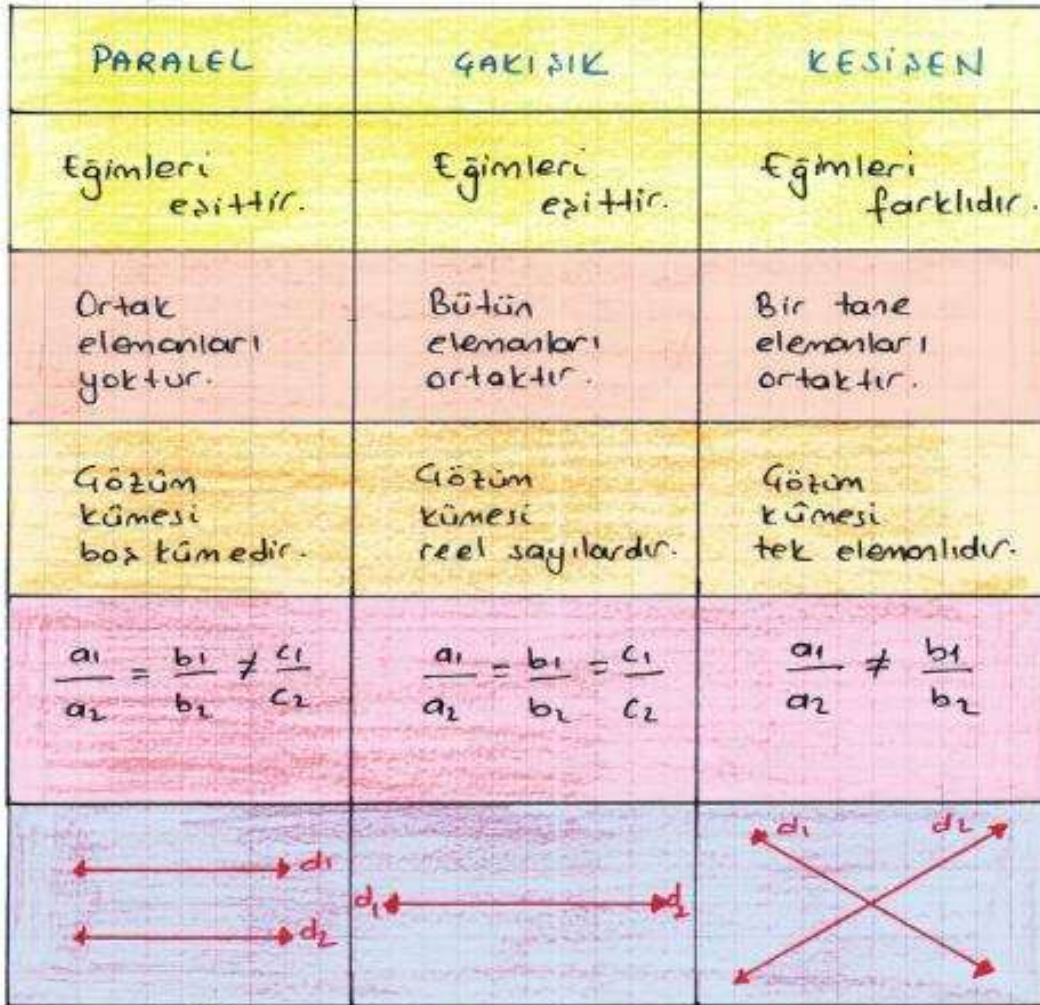 PARALEL
ÇAKIŞIK
KESİŞEN
Eğimleri
eşittir.
Eğimleri
eşittir.
Eğimleri
farklıdır.
Ortak
elemanları
yoktur.
Bütün
elemanları
ortaktır.
Bir tane
elemanları
ortaktır.
Çözüm
kümesi
boş kümedir.
Çözüm
kümesi
reel sayılardır.
Çözüm
kümesi
tek elemanlıdır.
a1/a2 = b1/b2 ≠ c1/c2
a1/a2 = b1/b2 = c1/c2
a1/a2 ≠ b1/b2
d1
d2
d1 d2
d1 d2